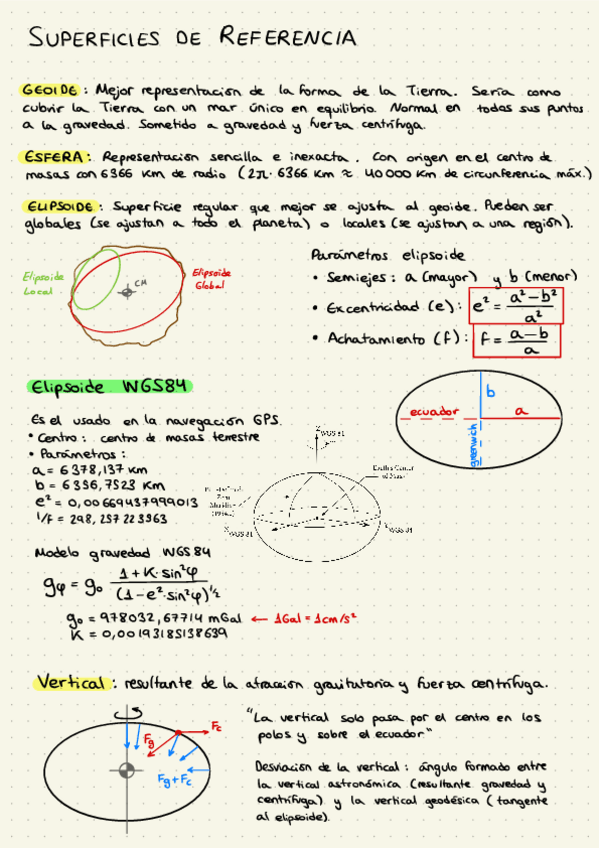 SUPERFICIES DE REFERENCIA
GEOIDE: Mejor representación de la forma de la Tierra. Sería como
cubrir la Tierra con un mar único en equilibrio. Normal en todos sus puntos
a la gravedad. Sometido a gravedad y fuerza centrífuga.
ESFERA: Representación sencilla e inexacta. Con origen en el centro de
masas con 6366 Km de radio (2π·6366 Km ≈ 40000 Km de circunferencia máx.)
ELIPSOIDE: Superficie regular que mejor se ajusta al geoide. Pueden ser
globales (se ajustan a todo el planeta) o locales (se ajustan a una región).
Elipsoide
Local
CM
Elipsoide
Global
Parámetros elipsoide
• Semiejes: a (mayor) y b (menor)
• Excentricidad (e): e² = (a² - b²) / a²
• Achatamiento (f): f = (a - b) / a
Elipsoide WGS84
b
ecuador
a
greenwich
Es el usado en la navegación GPS.
• Centro: centro de masas terrestre
• Parámetros:
a = 6378,137 Km
b = 6356,7523 Km
e² = 0,00669437999013
1/f = 298,257223563
Z WGS 84
Earth's Center
of Mass
X WGS 84
Y WGS 84
Modelo gravedad WGS84
gφ = g₀ (1 + K·sin²φ) / (1 - e²·sin²φ)^½
g₀ = 978032,67714 mGal ← 1Gal = 1cm/s²
K = 0,00193185138639
Vertical: resultante de la atracción gravitatoria y fuerza centrífuga.
Fc
Fg
Fg + Fc
"La vertical solo pasa por el centro en los
polos y sobre el ecuador"
Desviación de la vertical: ángulo formado entre
la vertical astronómica (resultante gravedad y
centrífuga) y la vertical geodésica (tangente
al elipsoide).